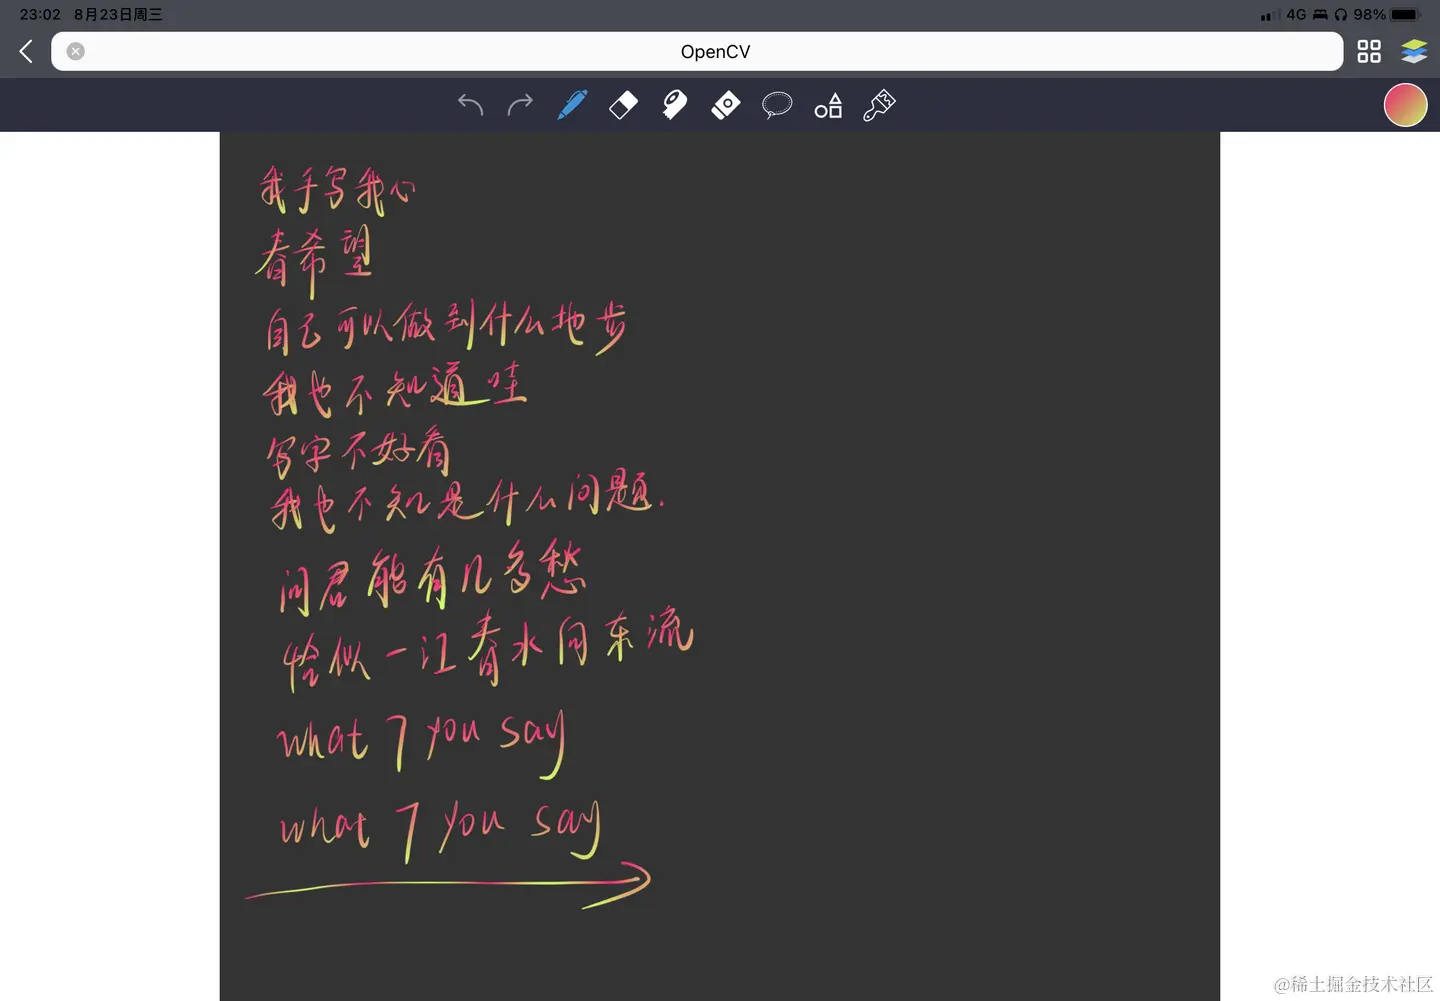 23:02 8月23日周三 4G 98%
OpenCV
我手写我心
春希望
自己可以做到什么地步
我也不知道哇
写字不好看
我也不知是什么问题.
问君能有几多愁
恰似一江春水向东流
what 7 you say
what 7 you say
@稀土掘金技术社区